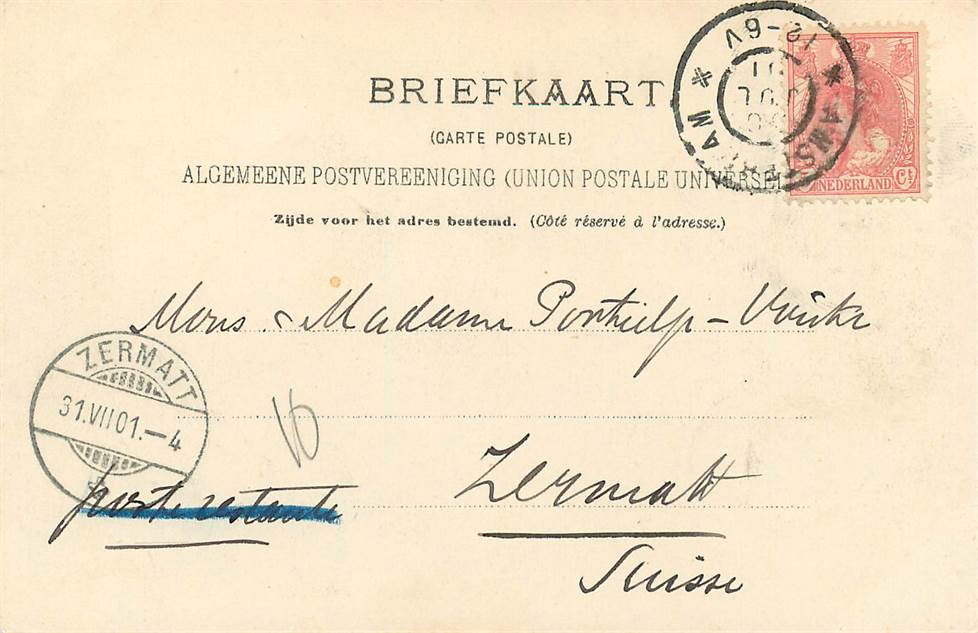 BRIEFKAART
(CARTE POSTALE)
ALGEMEENE POSTVEREENIGING (UNION POSTALE UNIVERSEL
Zijde voor het adres bestemd. (Côté réservé à l'adresse.)
AMSTERDAM
12-6V
JUL
01
NEDERLAND
Ct
Mons & Madame Porthielp - Vriske
ZERMATT
31.VII.01.–4
16
Zermatt
poste restante
Suisse